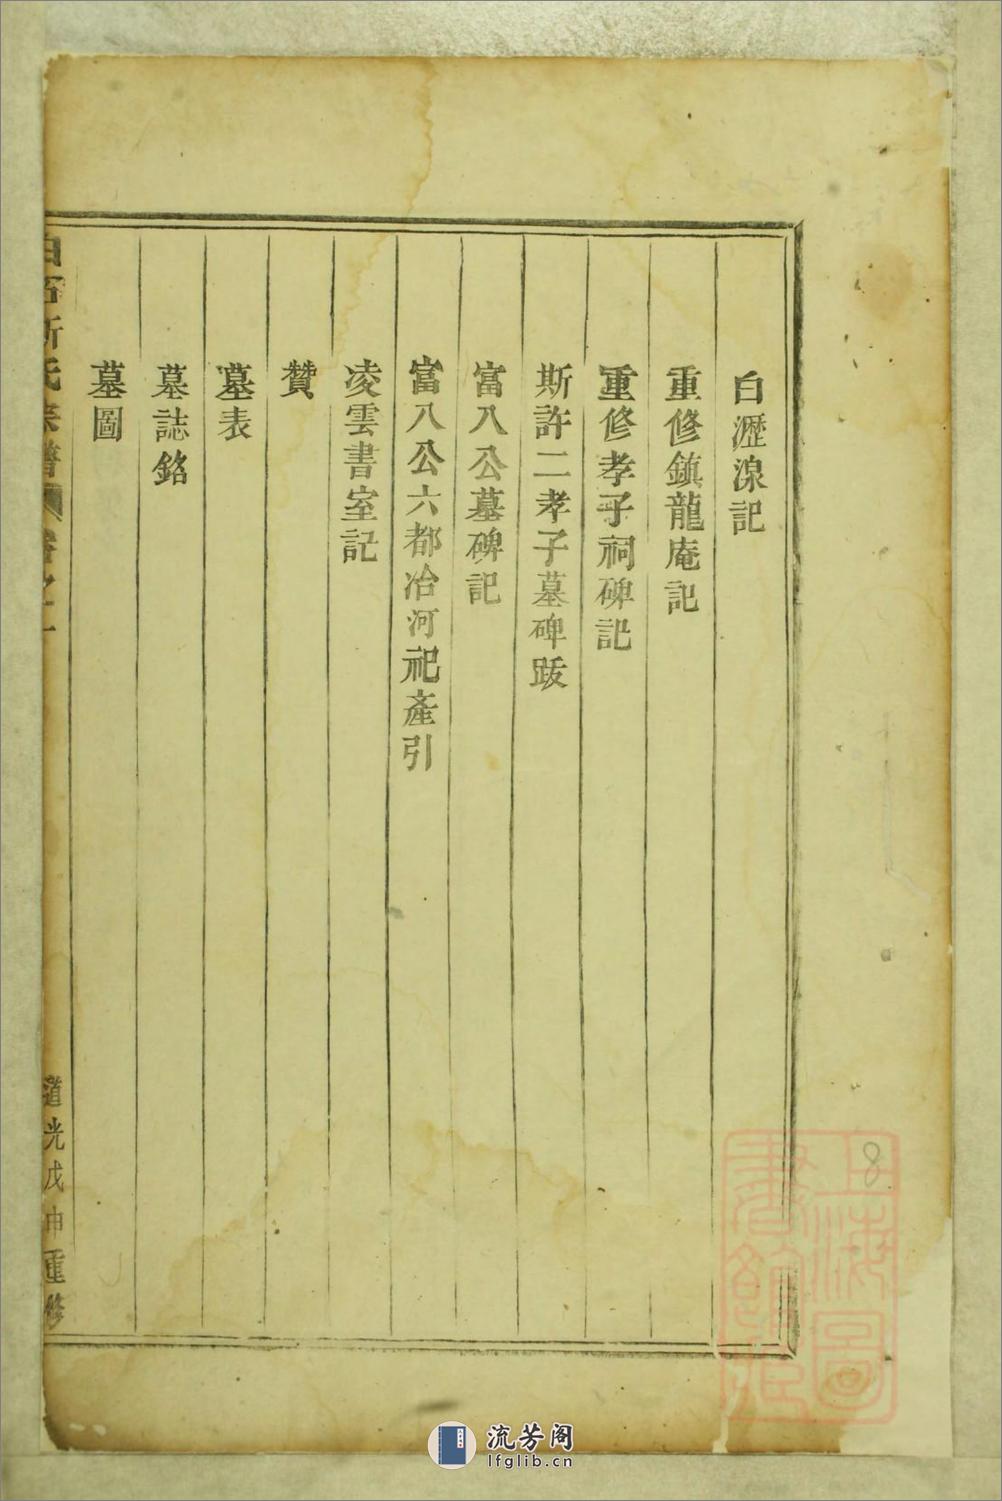 白瀝湶記
重修鎮龍庵記
重修孝子祠碑記
斯許二孝子墓碑跋
富八公墓碑記
富八公六都冶河祀產引
凌雲書室記
贊
墓表
墓誌銘
墓圖
白石斯氏宗譜 卷之一
道光戊申重修
上海圖書館藏
8
流芳阁
lfglib.cn